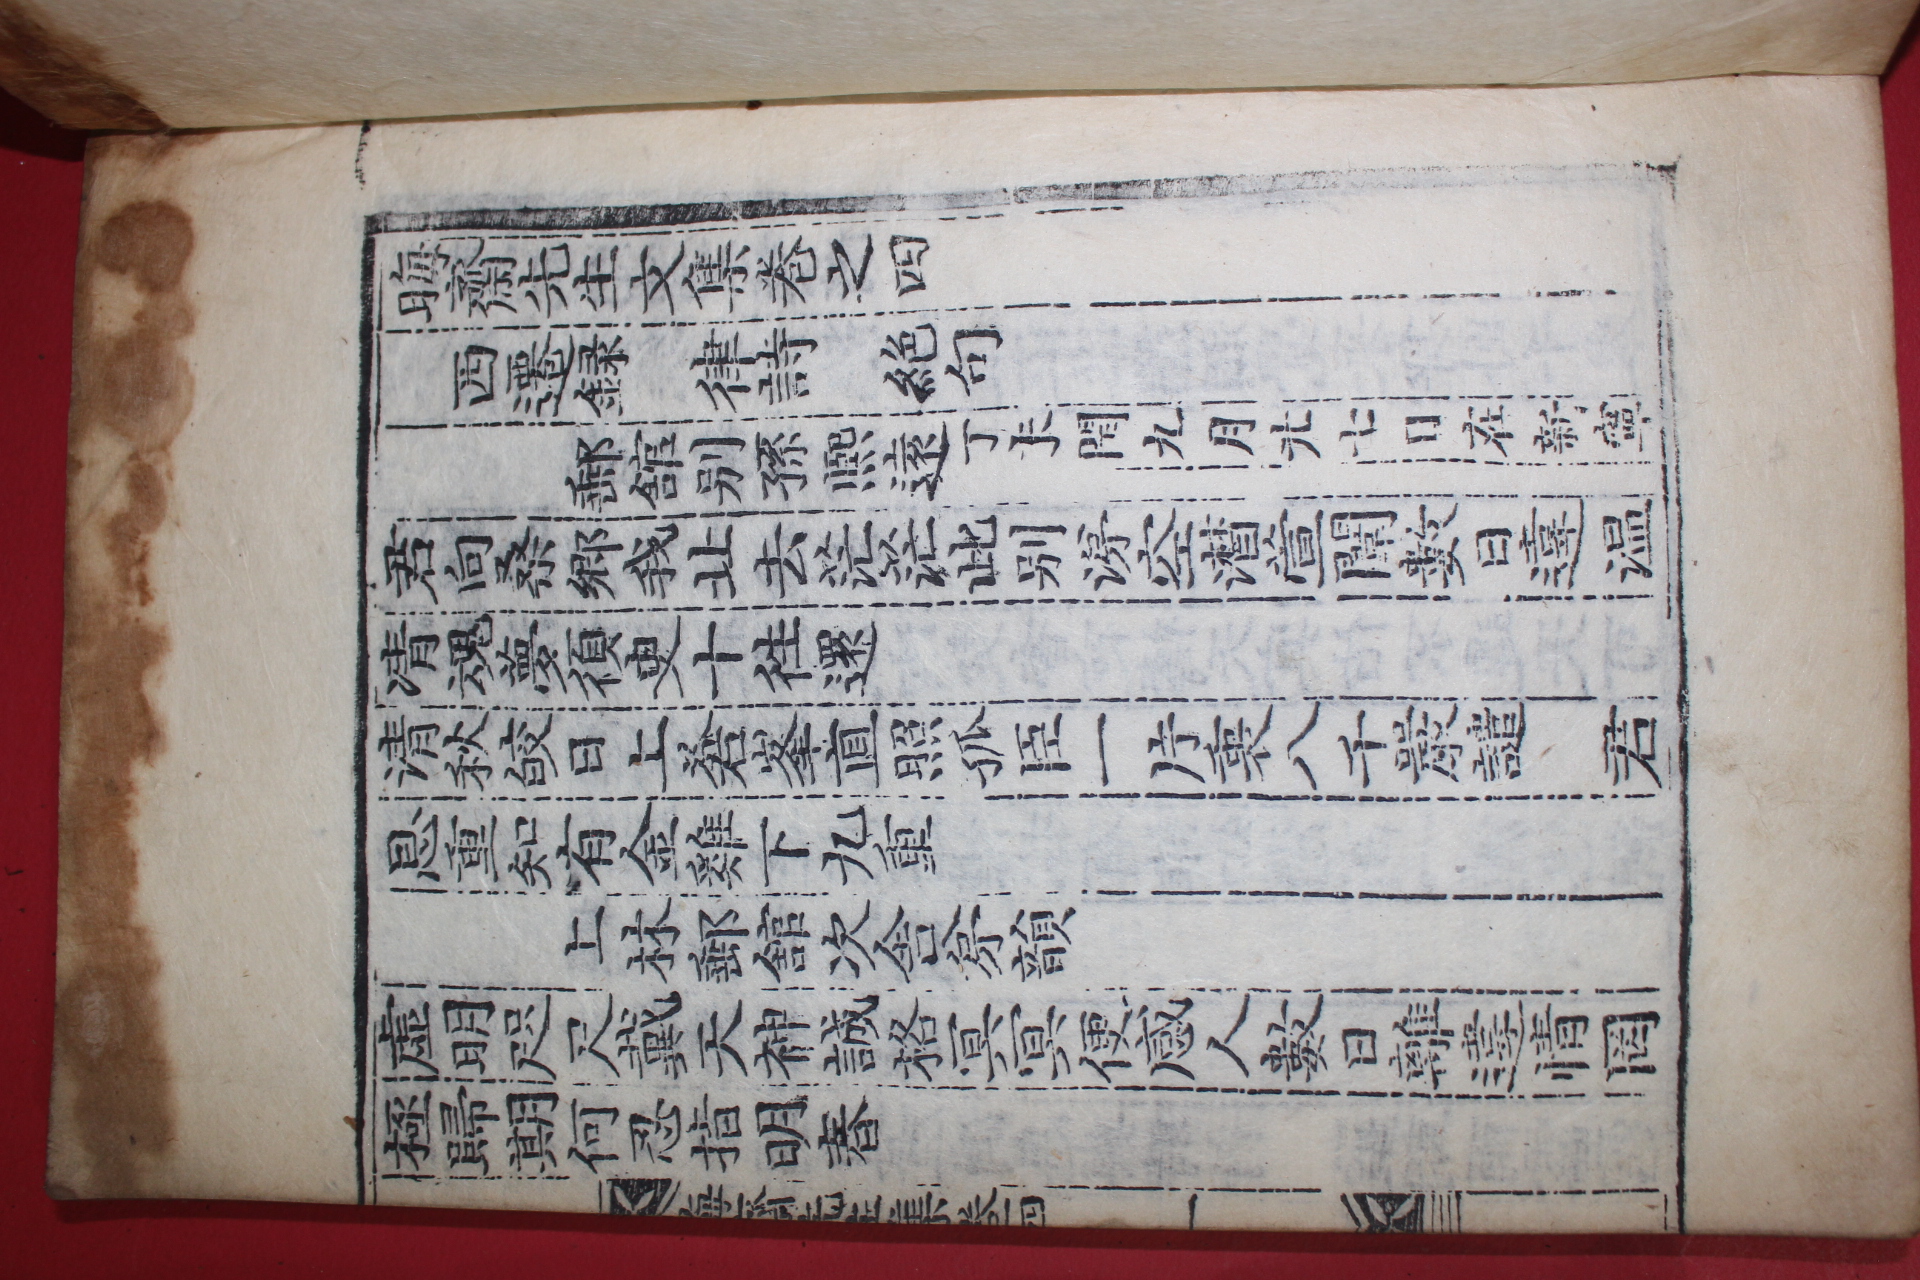 晦齋先生文集卷之四
西遷録　律詩　絶句
郵舘別孫熙遠丁未閏九月卄七日在新寧
君向桑鄉我北去茫茫此別涕空潸萱闈數日違温
凊魂夢須臾十徃還
清秋皎日上蒼峯直照孤臣一片衷八千嚴譴　君
恩重知有金雞下九重
上林郵舘次舍弟韻
虛明咫尺戴天神誠格冥冥便感人數日離違情罔
極歸期何忍指明春
晦齋先生集卷四
一